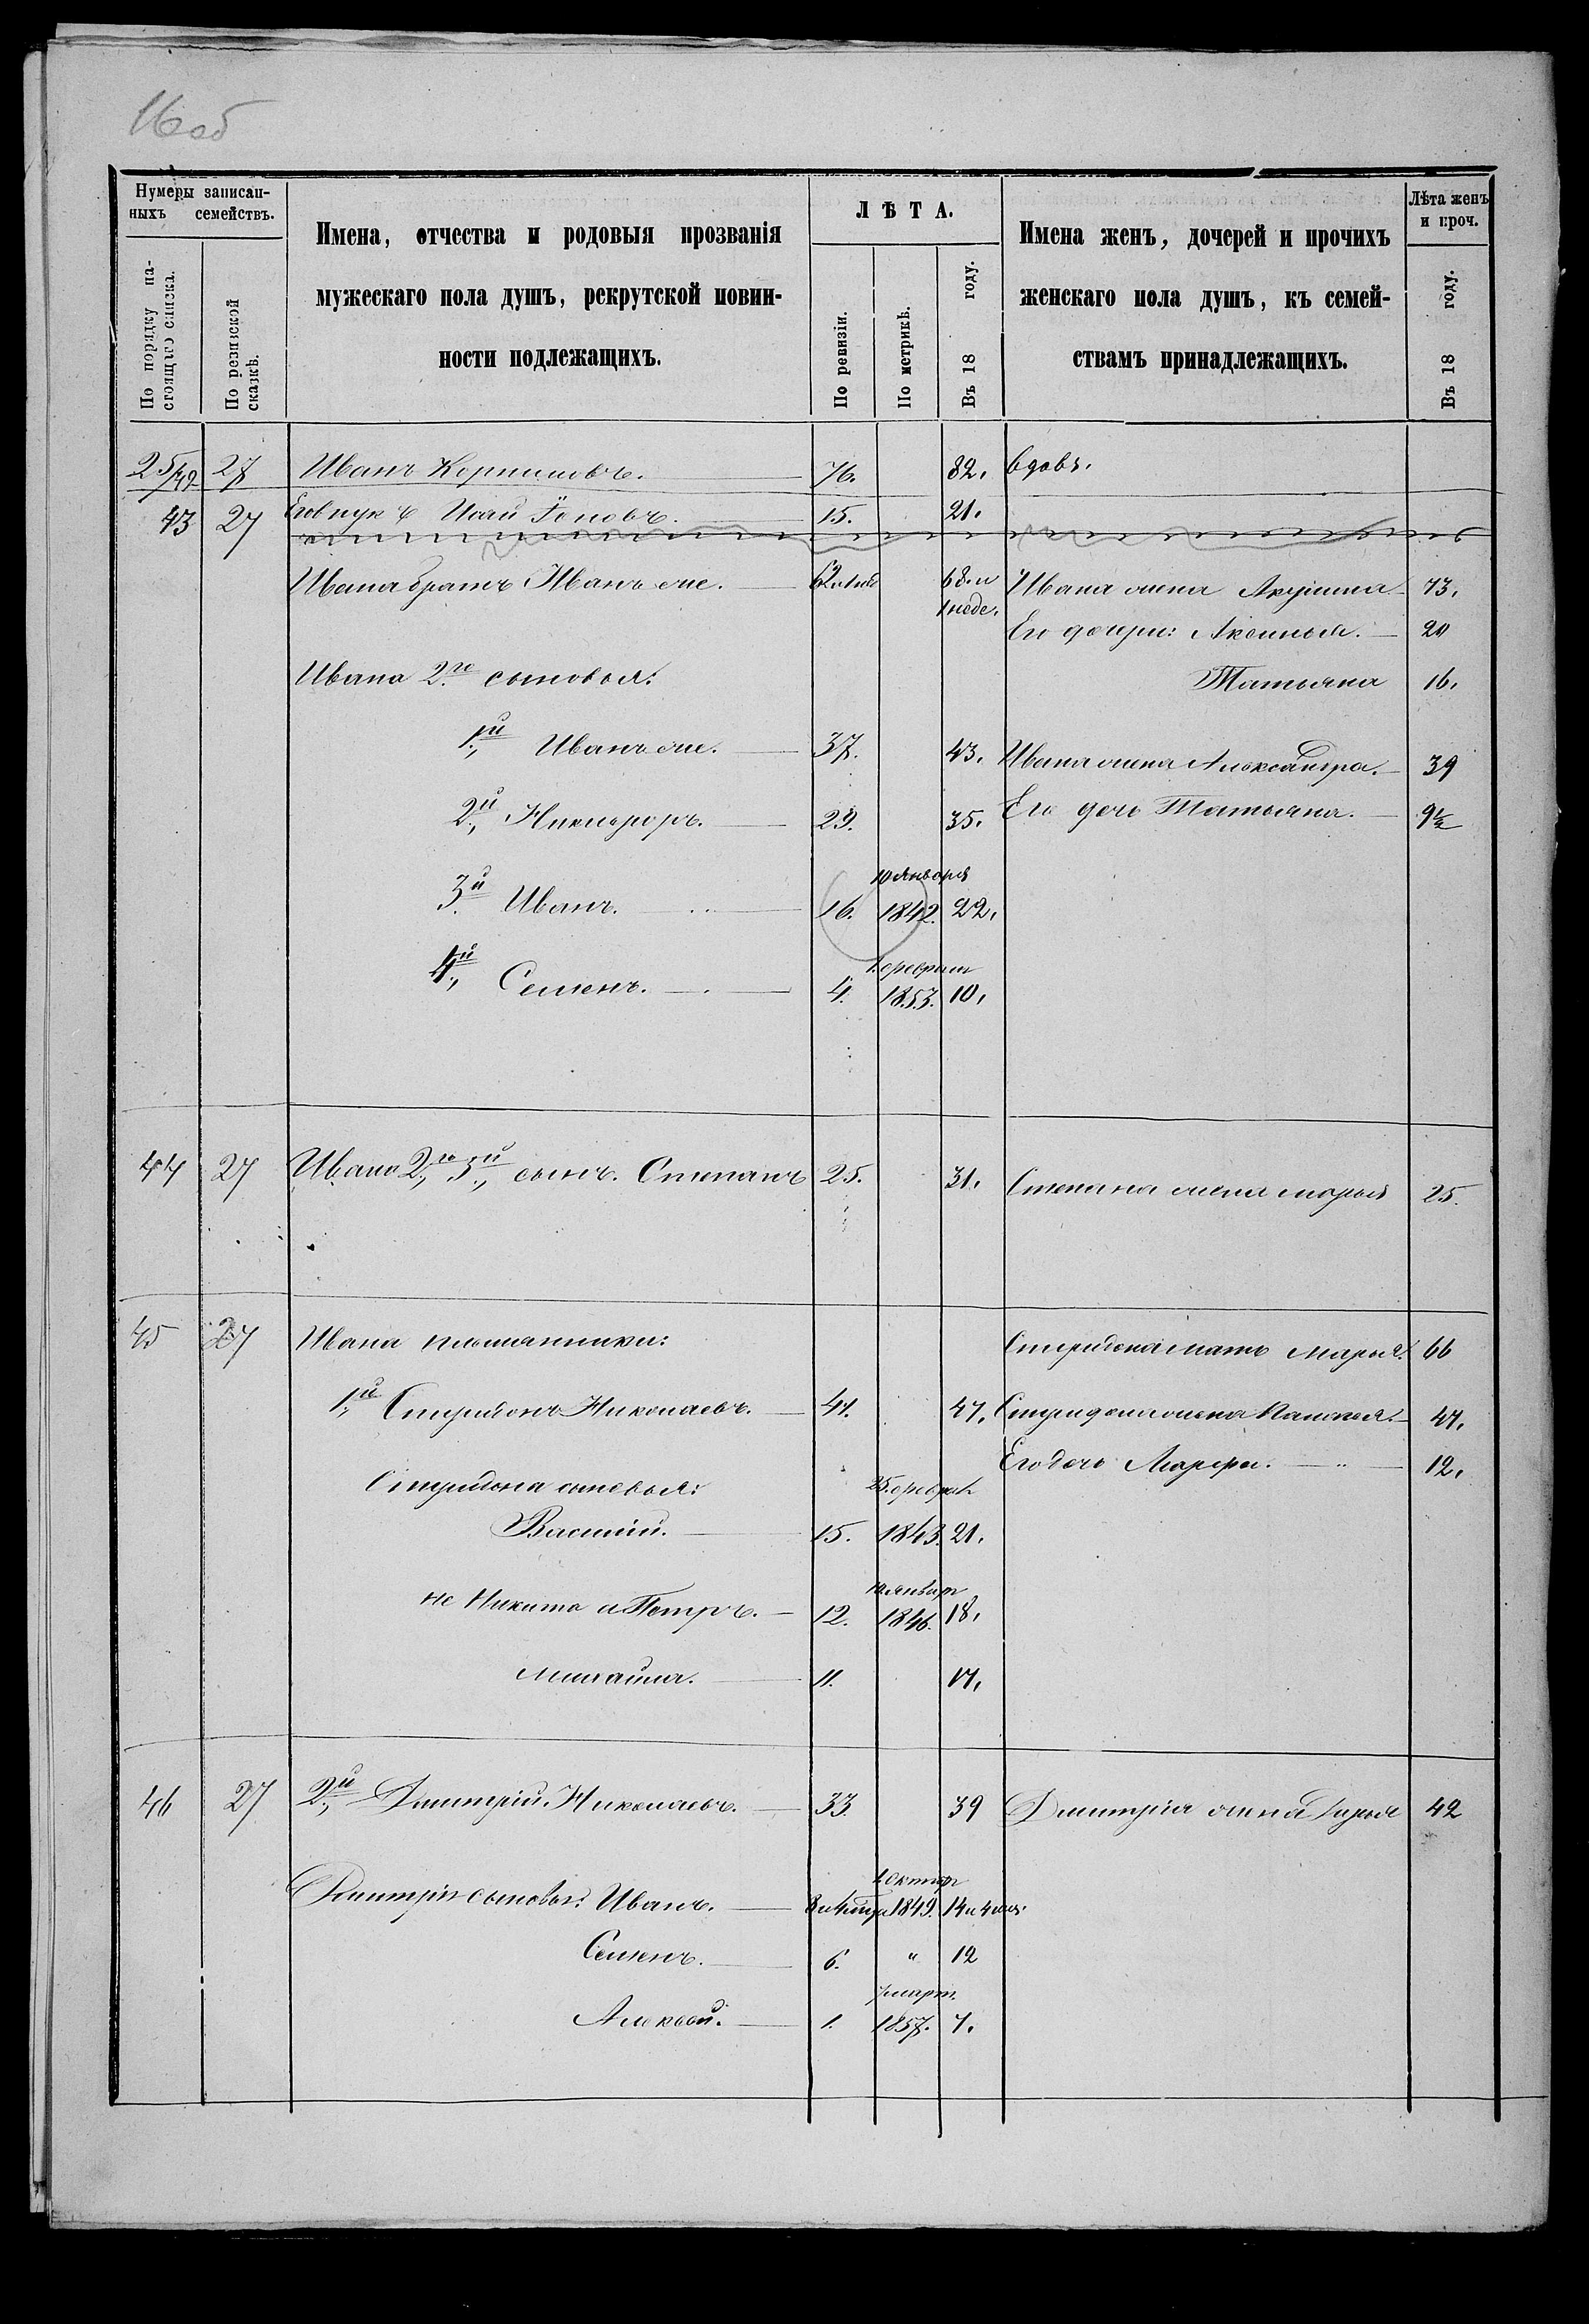 16 об
Нумеры записан-
ныхъ семействъ.
По порядку на-
стоящаго списка.
По ревизской
сказкѣ.
Имена, отчества и родовыя прозванія
мужескаго пола душъ, рекрутской повин-
ности подлежащихъ.
ЛѢТА.
По ревизіи.
По метрикѣ.
Въ 18 году.
Имена женъ, дочерей и прочихъ
женскаго пола душъ, къ семей-
ствамъ принадлежащихъ.
Лѣта женъ
и проч.
Въ 18 году.
25/42 27 Иванъ Корниловъ. 76. 82. вдовъ.
43 27 Его внукъ Исай Іоновъ. 15. 21.
Ивана братъ Иванъ же. 68. и Ивана жена Акулина 73.
1 неде. Его дочери: Аксинья. 20
Ивана 2го сыновья: Татьяна 16.
1й Иванъ же. 37. 43. Ивана жена Александра. 39
2й Никифоръ. 29. 35. Его дочь Татьяна. 9½
10 января
3й Иванъ. 16. 1842. 22.
феврал
4й Семенъ. 4. 1853. 10.
44 27 Ивана 2го 5й сынъ. Степанъ 25. 31. Степана жена Марья 25.
45 27 Ивана племянники: Спиридона мать Марья. 66
1й Спиридонъ Николаевъ. 41. 47. Спиридона жена Пелагея. 47.
Его дочь Марфа. 12.
Спиридона сыновья: 25. феврал
Василій. 15. 1843. 21.
январ
не Никита а Петръ. 12. 1846. 18.
Михайла. 11. 17.
46 27 2й Дмитрій Николаевъ. 33. 39 Дмитрія жена Дарья 42
1 Октяр
Дмитрія сыновья: Иванъ. 1849. 14 и 4 мѣс.
Семенъ. 6. " 12
7 март.
Алексѣй. 1. 1857. 7.